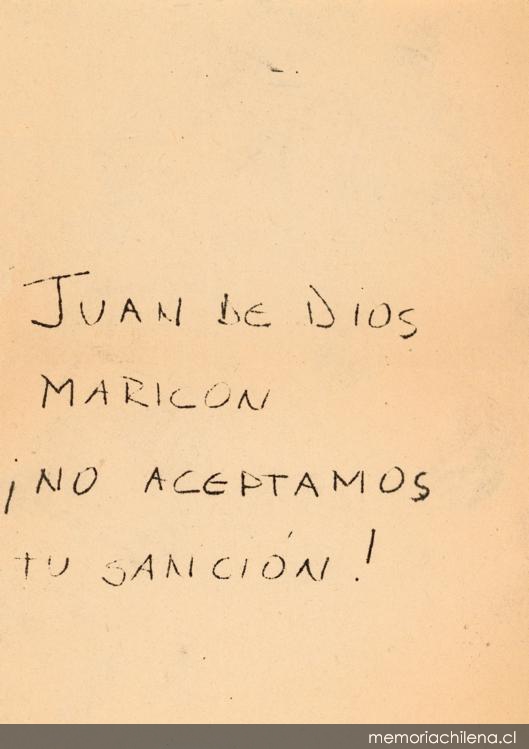 JUAN DE DIOS
MARICON
¡NO ACEPTAMOS
TU SANCIÓN!
memoriachilena.cl